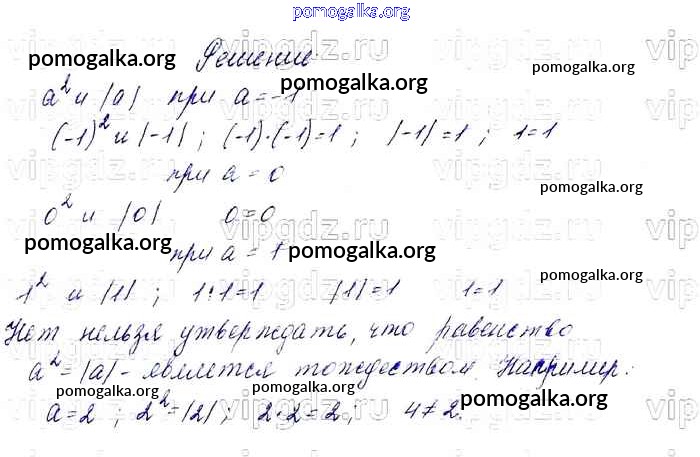 pomogalka.org
Решение
pomogalka.org
pomogalka.org
pomogalka.org
a² и |a| при a = -1
(-1)² и |-1| ; (-1)·(-1)=1 ; |-1|=1 ; 1=1
при a = 0
pomogalka.org
0² и |0| 0=0
pomogalka.org
pomogalka.org
при a = 1
pomogalka.org
1² и |1| ; 1·1=1 |1|=1 1=1
Нет нельзя утверждать, что равенство
a²=|a| - является тождеством. Например:
pomogalka.org
pomogalka.org
pomogalka.org
a=2 ; 2²=|2| ; 2·2=2 ; 4≠2.
vipgdz.ru
vipgdz.ru
vipgdz.ru
vipgdz.ru